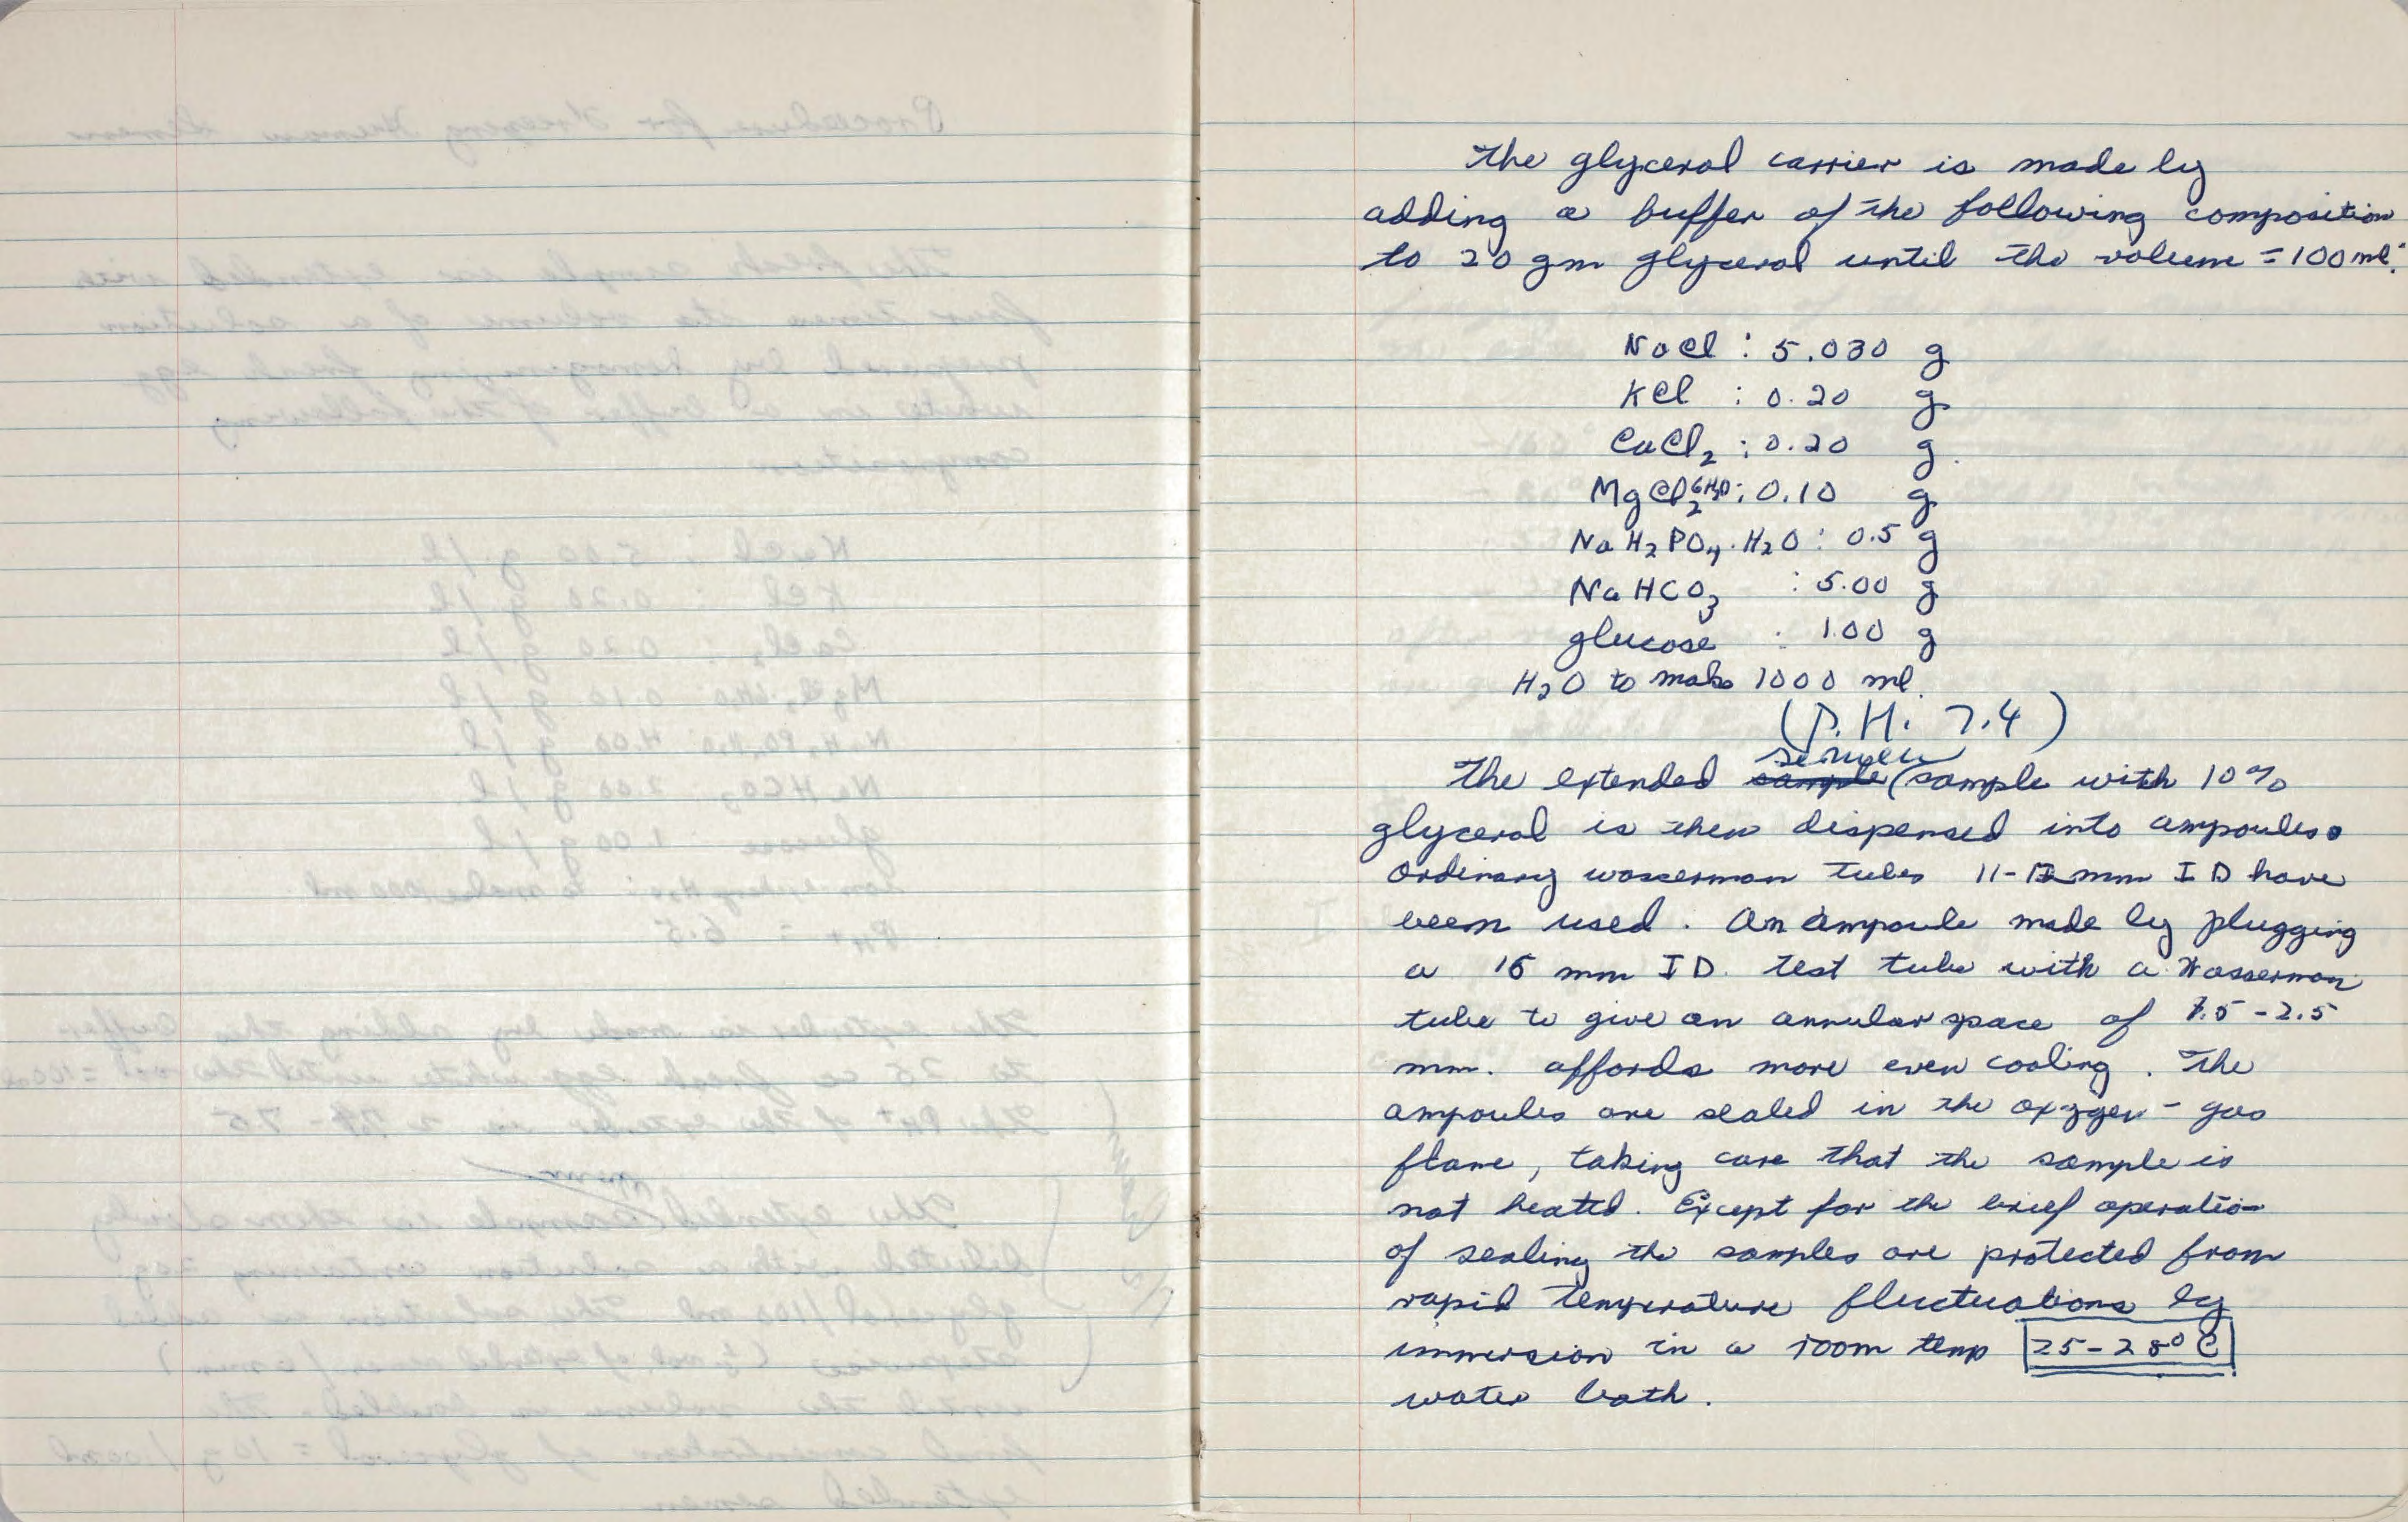 The glycerol carrier is made by
adding a buffer of the following composition
to 20 gm glycerol until the volume = 100 ml:
NaCl : 5.030 g
KCl : 0.20 g
CaCl2 : 0.20 g.
MgCl2 6H2O : 0.10 g
NaH2PO4·H2O : 0.5 g
NaHCO3 : 5.00 g
glucose : 1.00 g
H2O to make 1000 ml.
(P.H. 7.4)
semen
The extended sample (sample with 10%
glycerol is then dispensed into ampoules.
Ordinary wasserman tubes 11-12 mm ID have
been used. An ampoule made by plugging
a 16 mm ID. test tube with a Wasserman
tube to give an annular space of 1.5-2.5
mm. affords more even cooling. The
ampoules are sealed in the oxygen-gas
flame, taking care that the sample is
not heated. Except for the brief operation
of sealing the samples are protected from
rapid temperature fluctuations by
immersion in a room temp 25-28° C
water bath.